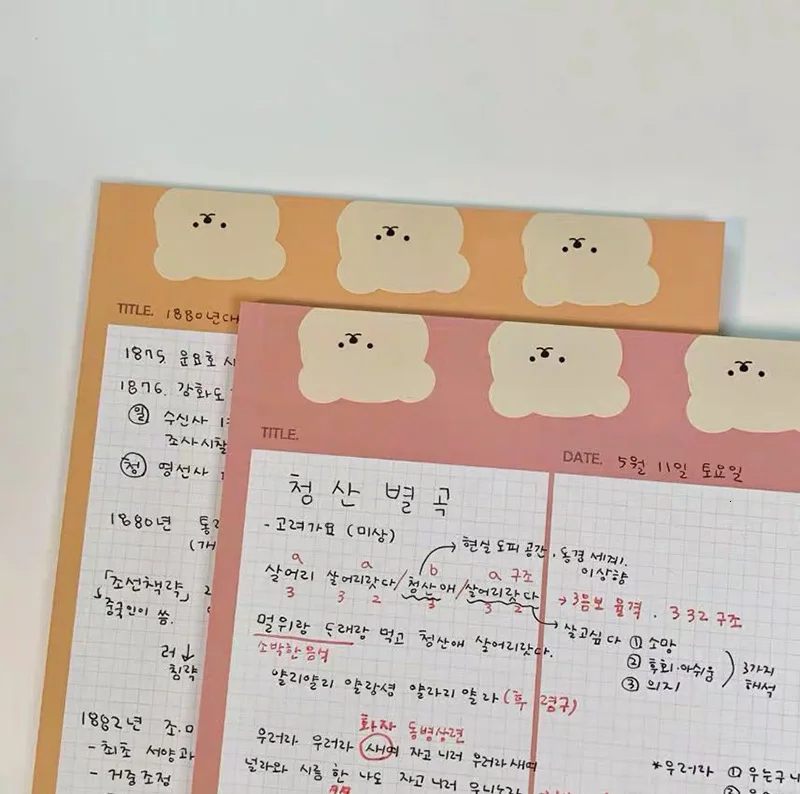 TITLE. 1880년대
1875. 운요호
1876. 강화도
일 수신사
조사시찰
청 영선사
1880년 통리
(개
「조선책략」
중국인이 씀.
러 ↓
침략
1882년 조.미
- 최초 서양과
- 거중조정
TITLE.
DATE. 5월 11일 토요일
청산별곡
- 고려가요 (미상)
→ 현실 도피 공간, 동경 세계,
이상향
a a b a 구조
살어리 살어리랏다/청산애/살어리랏다
3 3 2 3 3 2
→ 3음보 율격. 3 3 2 구조
→ 살고싶다 ① 소망
② 후회·아쉬움
③ 의지
3가지
해석
멀위랑 ᄃᆞ래랑 먹고 청산애 살어리랏다.
소박한 음식
얄리얄리 얄랑셩 얄라리 얄라 (후렴구)
화자 동병상련
우러라 우러라 새여 자고 니러 우러라 새여
널라와 시름 한 나도 자고 니러 우니노라
*우러라 ① 우는구나
②